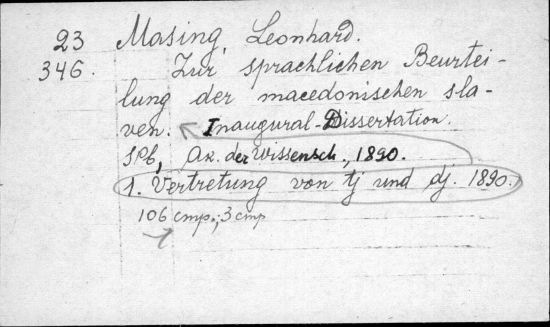 23 Masing, Leonhard.
346. Zur sprachlichen Beurtei-
lung der macedonischen sla-
ven. Inaugural-Dissertation.
SPb, Ak. der Wissensch., 1890.
1. Vertretung von tj und dj. 1890.
106 стр.; 3 стр